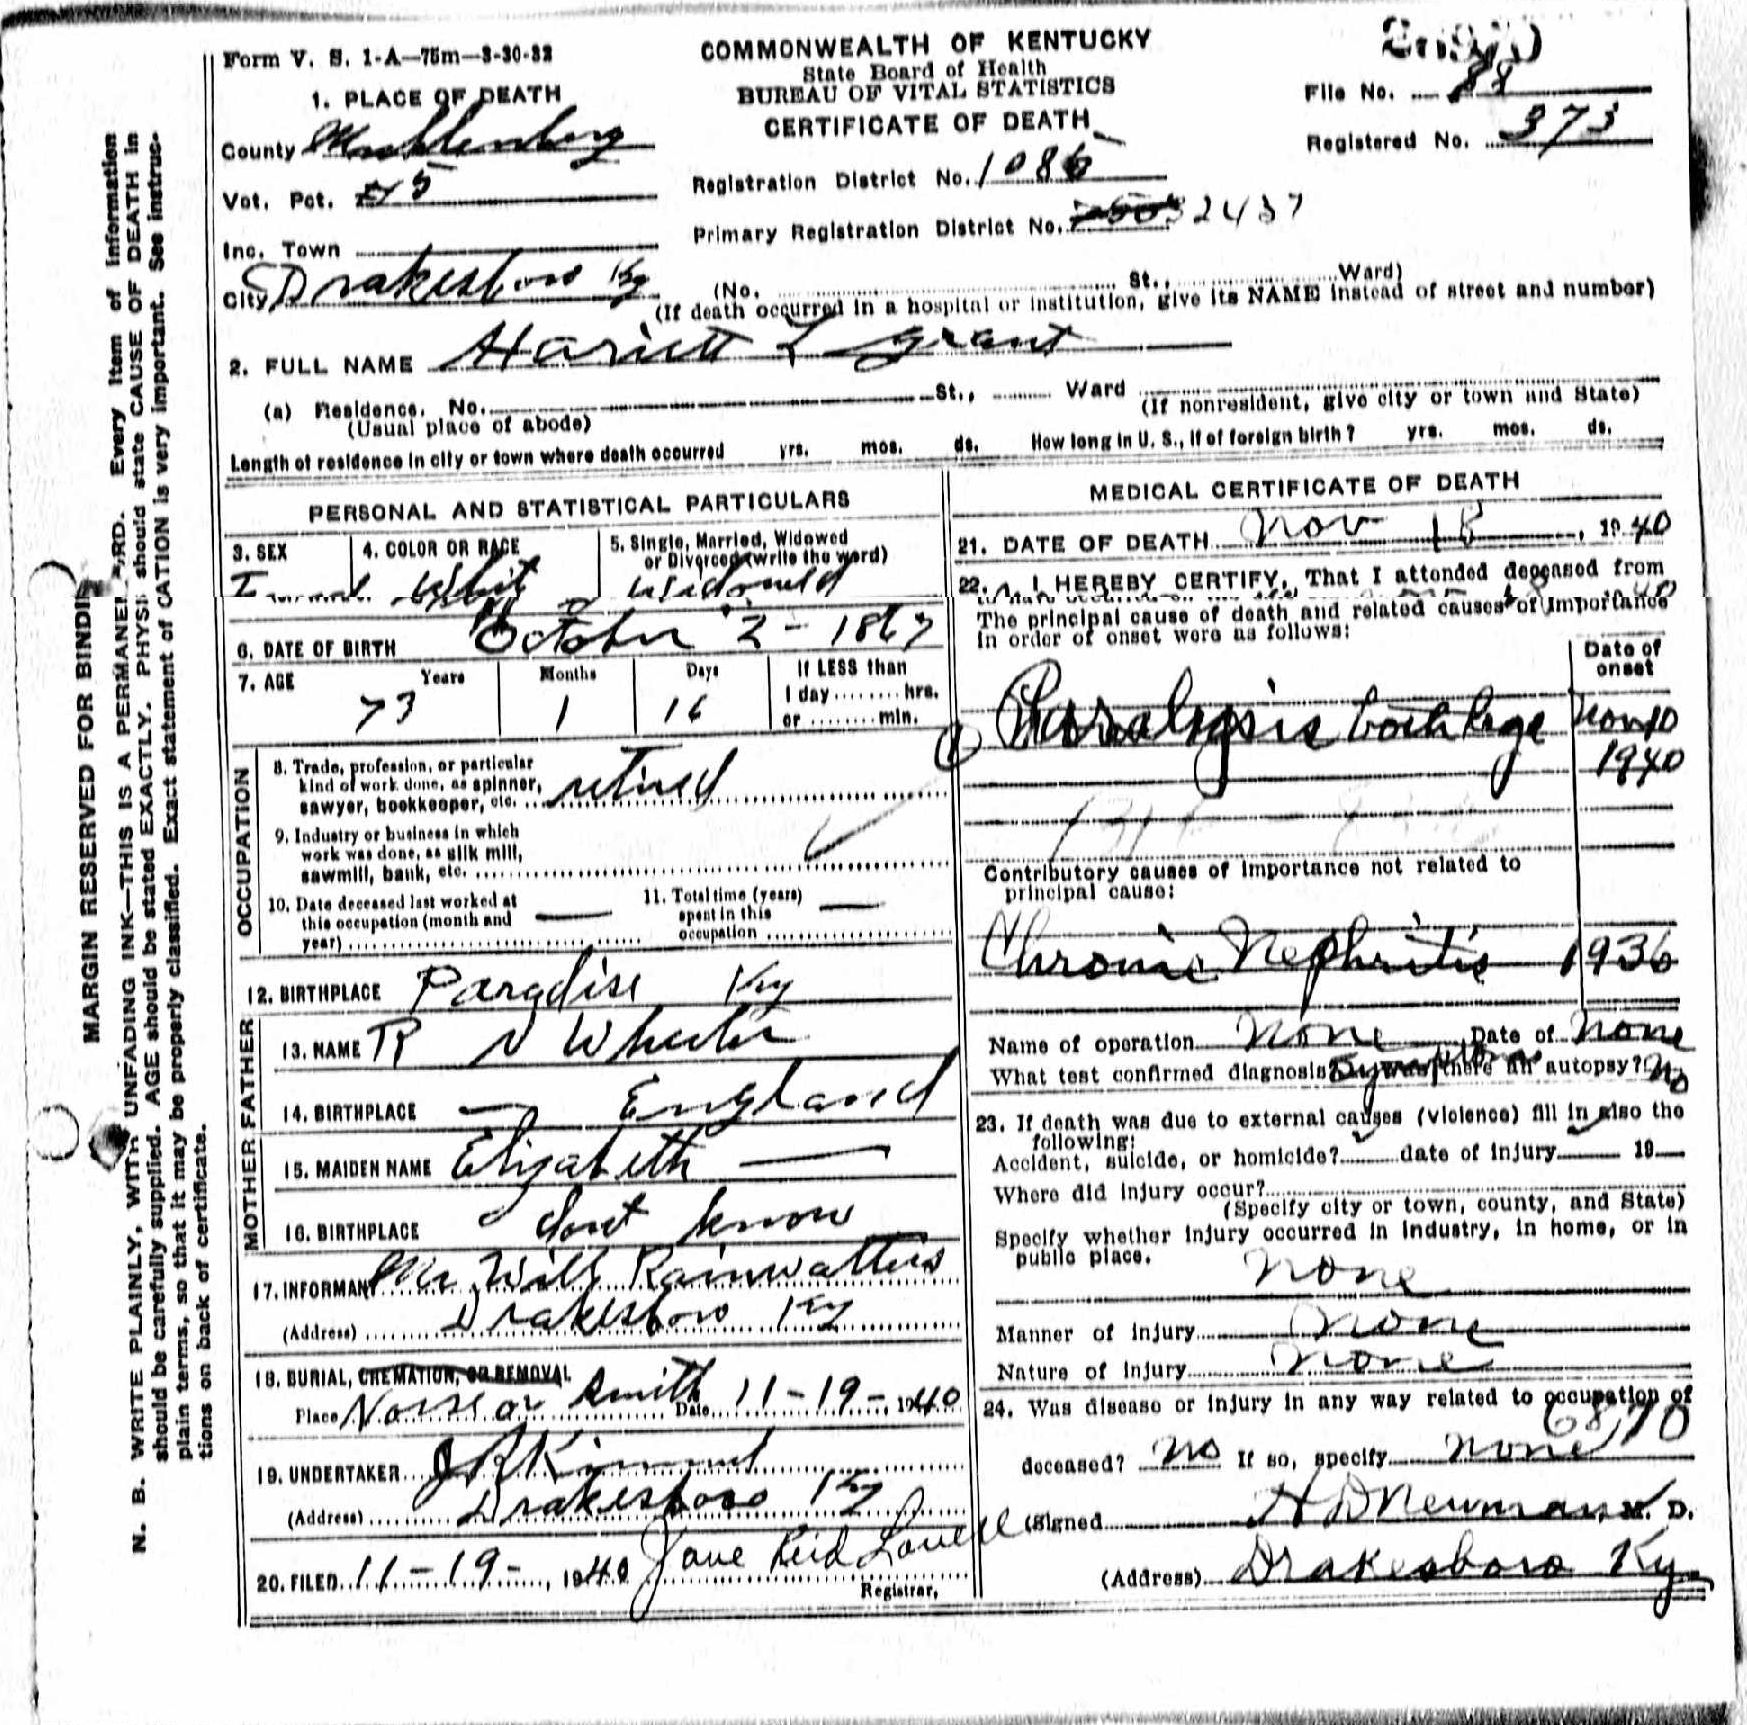 Form V. S. 1-A—75m—3-30-32
COMMONWEALTH OF KENTUCKY
State Board of Health
BUREAU OF VITAL STATISTICS
CERTIFICATE OF DEATH
File No. 88
Registered No. 373
1. PLACE OF DEATH
County Muhlenberg
Vot. Pct. 45
Inc. Town
City Drakesboro Ky
Registration District No. 1086
Primary Registration District No. 2437
(No. St., Ward)
(If death occurred in a hospital or institution, give its NAME instead of street and number)
2. FULL NAME Hariett L Grant
(a) Residence. No. St., Ward
(Usual place of abode)
(If nonresident, give city or town and State)
Length of residence in city or town where death occurred yrs. mos. ds. How long in U. S., if of foreign birth? yrs. mos. ds.
PERSONAL AND STATISTICAL PARTICULARS
3. SEX
4. COLOR OR RACE
White
5. Single, Married, Widowed
or Divorced (write the word)
6. DATE OF BIRTH October 2 - 1867
7. AGE Years Months Days
73 1 16
If LESS than
1 day ........ hrs.
or ........ min.
OCCUPATION
8. Trade, profession, or particular
kind of work done, as spinner,
sawyer, bookkeeper, etc. retired
9. Industry or business in which
work was done, as silk mill,
sawmill, bank, etc.
10. Date deceased last worked at
this occupation (month and
year)
11. Total time (years)
spent in this
occupation
12. BIRTHPLACE Paradise Ky
FATHER
13. NAME R N Wheeler
14. BIRTHPLACE — England
MOTHER
15. MAIDEN NAME Elizabeth —
16. BIRTHPLACE dont know
17. INFORMANT Mr Will Rainwatters
(Address) Drakesboro Ky
18. BURIAL, CREMATION, OR REMOVAL
Place Smith Date 11-19-, 1940
19. UNDERTAKER J R Kimmel
(Address) Drakesboro Ky
20. FILED 11-19-, 1940 Jane Reid Lovell
Registrar,
MEDICAL CERTIFICATE OF DEATH
21. DATE OF DEATH Nov 18, 1940
22. I HEREBY CERTIFY, That I attended deceased from
The principal cause of death and related causes of importance
in order of onset were as follows:
Date of
onset
Paralysis both legs Nov 10
1940
Contributory causes of importance not related to
principal cause:
Chronic Nephritis 1936
Name of operation none Date of none
What test confirmed diagnosis? Symptoms Was there an autopsy? No
23. If death was due to external causes (violence) fill in also the
following:
Accident, suicide, or homicide? date of injury 19
Where did injury occur?
(Specify city or town, county, and State)
Specify whether injury occurred in industry, in home, or in
public place.
none
Manner of injury none
Nature of injury none
24. Was disease or injury in any way related to occupation of
deceased? No If so, specify none
(Signed H D Newman, M. D.
(Address) Drakesboro Ky.
MARGIN RESERVED FOR BINDING
N. B. WRITE PLAINLY, WITH UNFADING INK—THIS IS A PERMANENT RECORD. Every item of information
should be carefully supplied. AGE should be stated EXACTLY. PHYSI should state CAUSE OF DEATH in
plain terms, so that it may be properly classified. Exact statement of CATION is very important. See instruc-
tions on back of certificate.